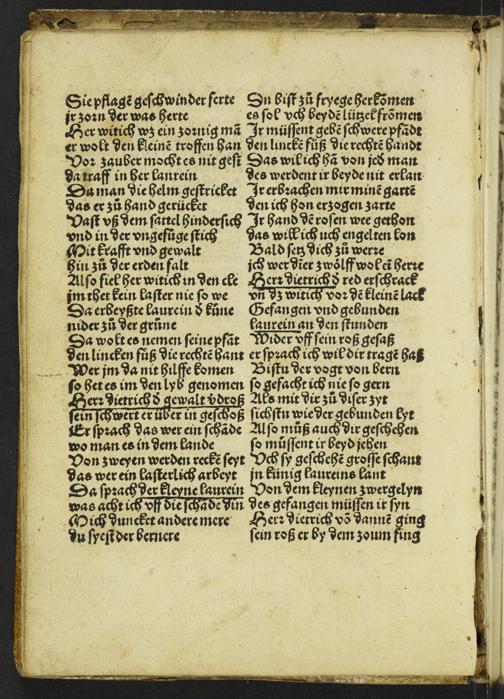 Sie pflagē geschwinder ferte
jr zorn der was herte
Her witich wz ein zornig mā
er wolt den kleinē troffen han
Vor zauber mocht es nit gest
da traff in her laurein
Da man die helm gestricket
das er zů hand gerücket
Vast vß dem sattel hindersich
vnd in der vngefüge stich
Mit krafft vnd gewalt
hin zů der erden falt
Also fiel her witich in den cle
jm thet kein laster nie so we
Da erbeyßte laurein d̄ küne
nider zů der grüne
Da wolt es nemen seine pfāt
den lincken fůß die rechtē hant
Wer jm da nit hilffe komen
so het es im den lyb genomen
Herr dietrich d̄ gewalt v̄droß
sein schwert er über in geschoß
Er sprach das wer ein schāde
wo man es in dem lande
Von zweyen werden reckē seyt
das wer ein lasterlich arbeyt
Da sprach der kleyne laurein
was acht ich vff die schāde din
Mich duncket andere mere
du syest der bernere
Du bist zů fryege herkōmen
es sol vch beydē lützel frōmen
Jr müssent gebē schwere pfādt
den linckē fůß die rechtē handt
Das wil ich hā von jed man
des werdent ir beyde nit erlan
Jr erbrachen mir minē gartē
den ich hon erzogen zarte
Jr hand dē rosen wee gethon
das will ich uch engelten lon
Bald setz dich zů werre
jch wer dier zwölff wolt ein herre
Herr dietrich d̄ red erschrack
vn̄ dz witich vor dē kleinē lack
Gefangen vnd gebunden
laurein an den stunden
Wider vff sein roß gesaß
er sprach ich wil dir tragē haß
Bistu der vogt von bern
so gesacht ich nie so gern
Als mit dir zů diser zyt
sichstu wie der gebunden lyt
Also můß auch dir geschehen
so müssent ir beyd jehen
Vch sy geschehē grosse schant
jn künig laureins lant
Von dem kleynen zwergelyn
des gefangen müssen ir syn
Herr dietrich vō dannē ging
sein roß er by dem zoum fing